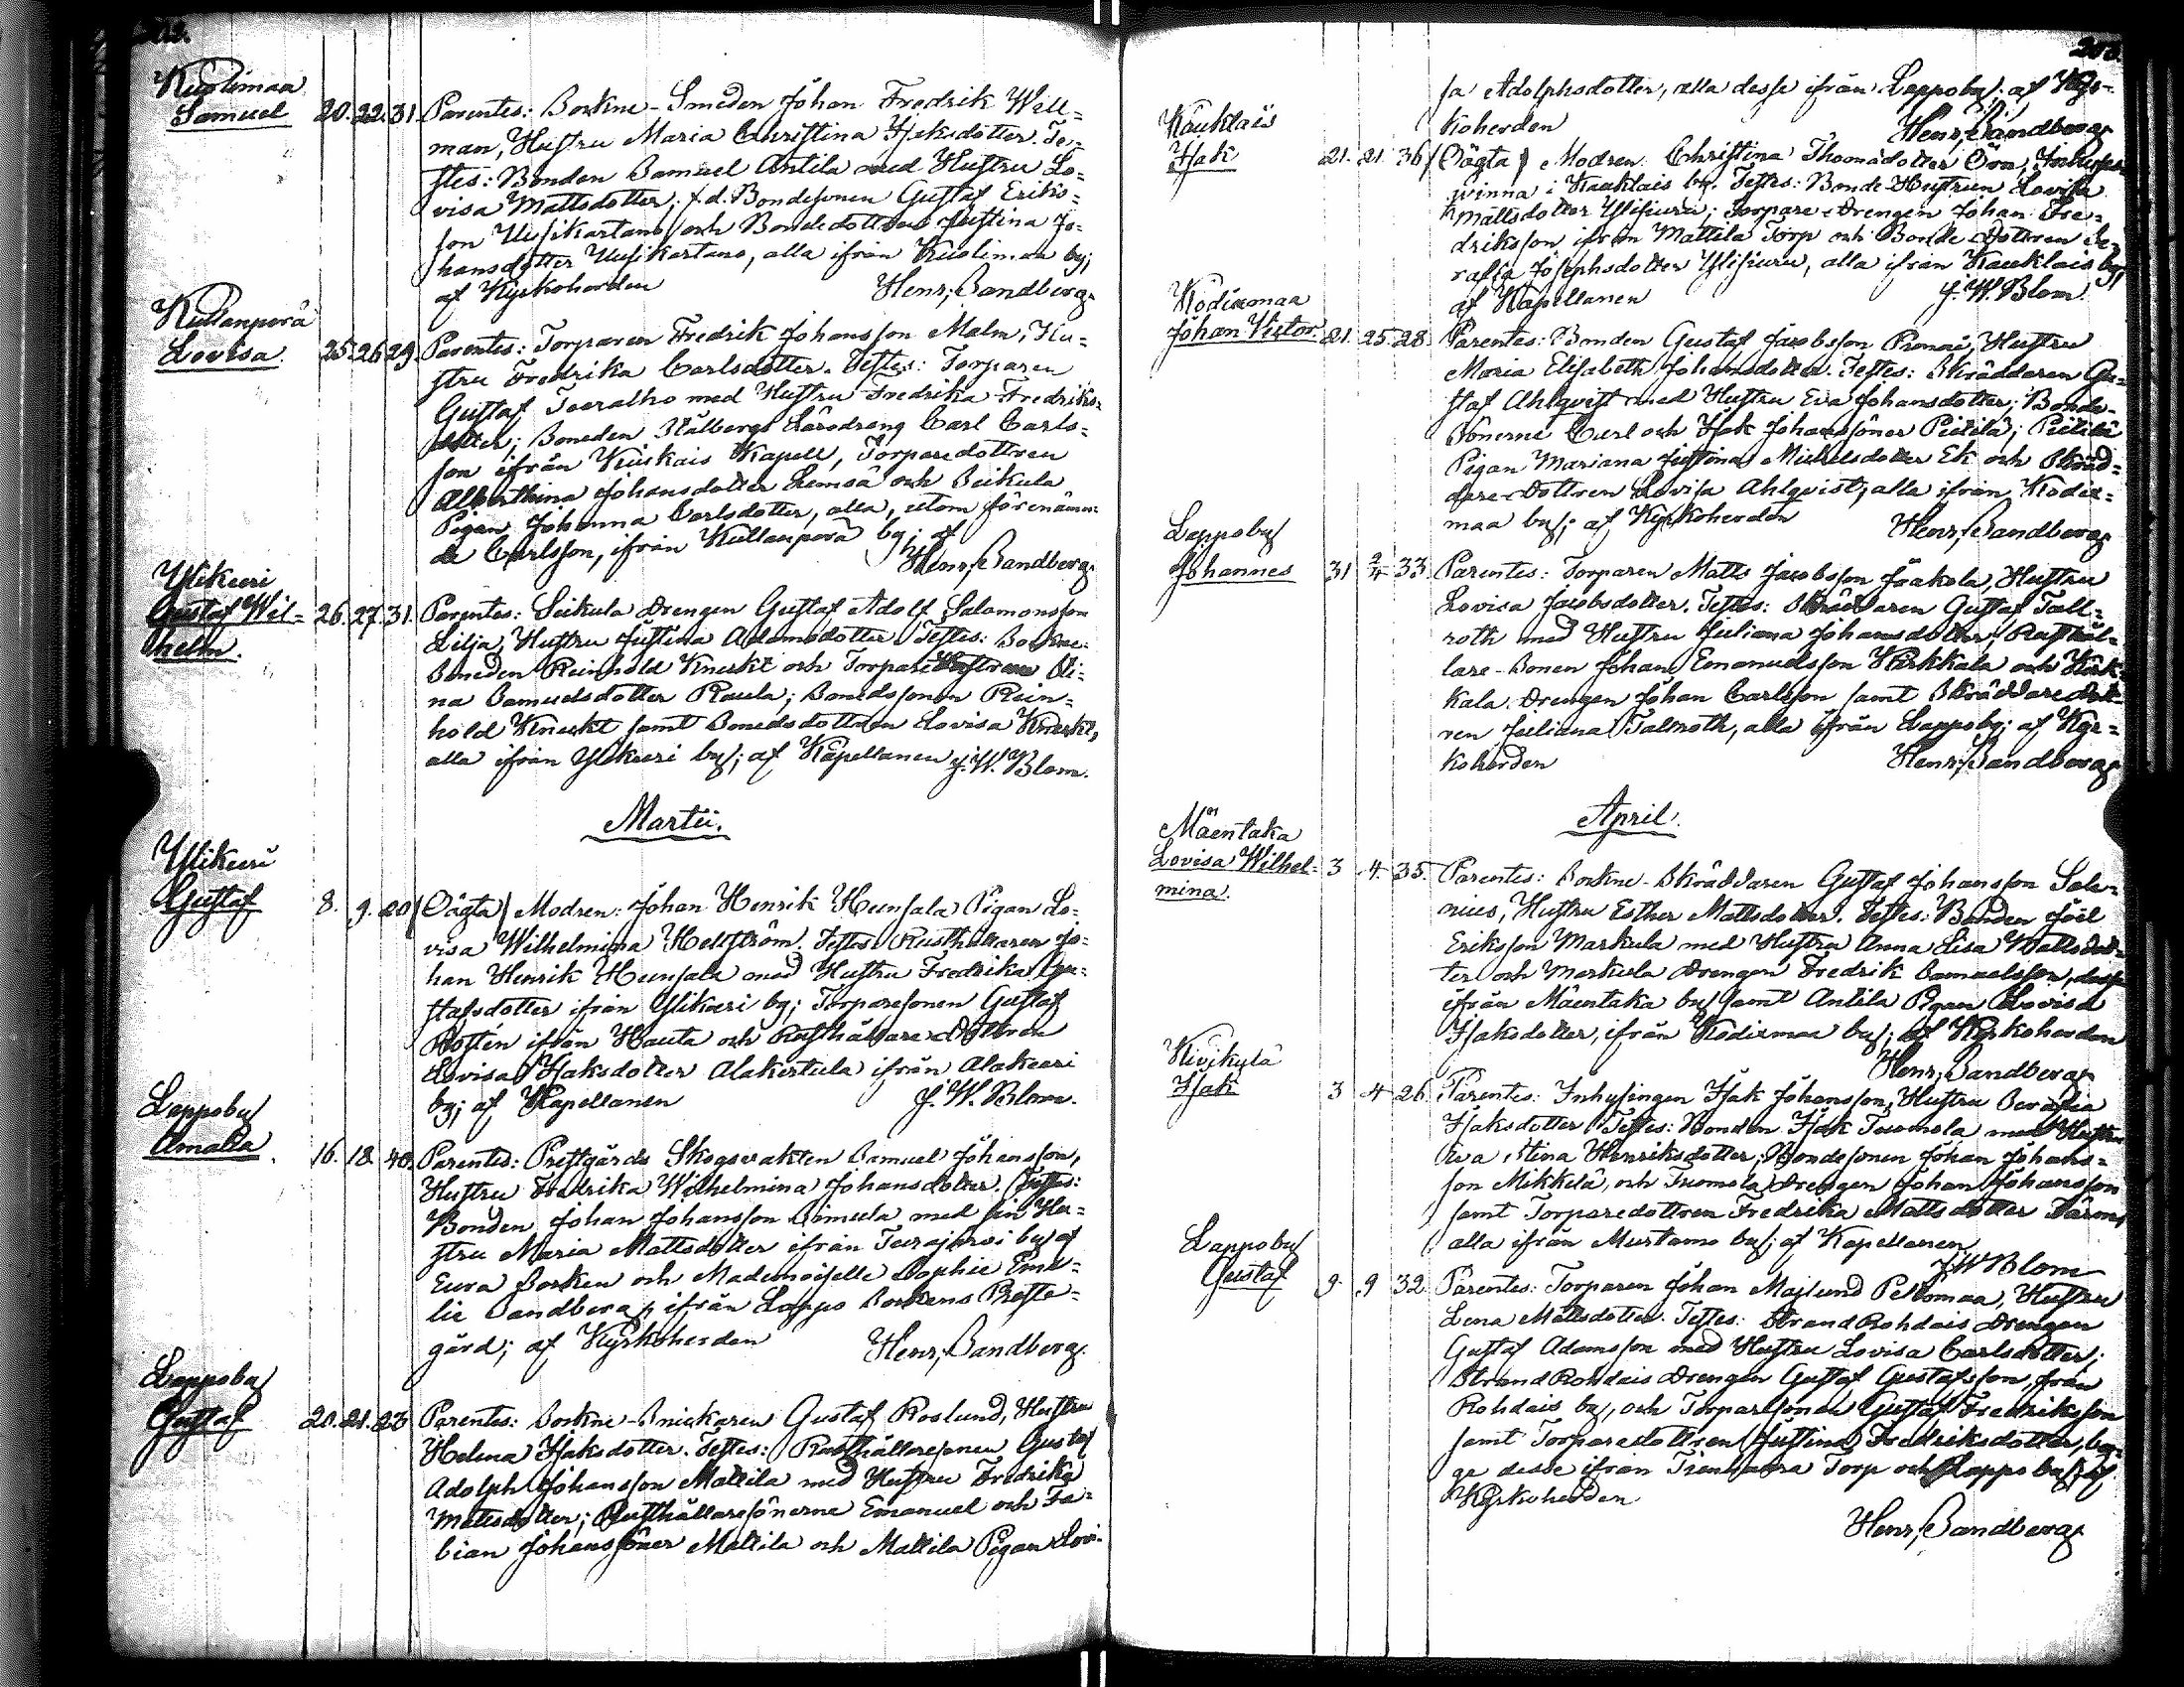 212.
Kuolimaa
Samuel 20. 22. 31. Parentes: Sockne-Smeden Johan Fredrik Will=
man, Hustru Maria Christina Isaksdotter. Te=
stes: Bonden Samuel Antila med Hustru Lo=
visa Mattsdotter; f.d. Bondesonen Gustaf Eriks=
son Uusikartano och Bondedottren Justina Jo=
hansdotter Uusikartano, alla ifrån Kuolimaa by;
af Kyrkoherden Henr; Sandberg.
Kullanperä
Lovisa. 25. 26. 29. Parentes: Torparen Fredrik Johansson Malm, Hu=
stru Fredrika Carlsdotter. Testes: Torparen
Gustaf Toeralho med Hustru Fredrika Fredriks=
dotter; Smeden Stålbergs Lärodreng Carl Carls=
son ifrån Kiukais Kapell, Torparedottren
Albertina Johansdotter Lemsä och Seikula
Pigan Johanna Carlsdotter, alla, utom förenämn=
de Carlsson, ifrån Kullanperä by; af
Henr; Sandberg.
Ylikuri
Gustaf Wil=
helm. 26. 27. 31. Parentes: Seikula Drengen Gustaf Adolf Salomonsson
Lilja, Hustru Justina Adamsdotter. Testes: Sockne-
Smeden Reinhold Knecht och Torpare Hustrun Sti=
na Samuelsdotter Raula; Smedssonen Rein=
hold Knecht samt Smedsdottren Lovisa Knecht,
alla ifrån Ylikuri by; af Kapellanen J. W. Blom.
Martii.
Ylikuri
Gustaf 8. 9. 20. (Oägta) Modren: Johan Henrik Heunsala Pigan Lo=
visa Wilhelmina Hellström. Testes: Rusthållaren Jo=
han Henrik Heunsala med Hustru Fredrika Gu=
stafsdotter ifrån Ylikuri by; Torparesonen Gustaf
Rostén ifrån Hauta och Rusthållare Dottren
Lovisa Isaksdotter Alakertula ifrån Alakuri
by; af Kapellanen J. W. Blom.
Lappoby
Amalia. 16. 18. 40. Parentes: Prestgårds Skogsvakten Samuel Johansson,
Hustru Fredrika Wilhelmina Johansdotter. Testes:
Bonden Johan Johansson Simula med sin Hu=
stru Maria Mattsdotter ifrån Turajärvi by af
Eura Socken och Mademoiselle Sophie Emi=
lie Sandberg, ifrån Lappo Sockens Preste=
gård; af Kyrkoherden Henr; Sandberg.
Lappoby
Gustaf 20. 21. 23 Parentes: Sockne-Snickaren Gustaf Roslund, Hustru
Helena Isaksdotter. Testes: Rusthållaresonen Gustaf
Adolph Johansson Mattila med Hustru Fredrika
Mattsdotter; Rusthållaresönerne Emanuel och Fa=
bian Johanssöner Mattila och Mattila Pigan Lovi-
213.
sa Adolphsdotter, alla desse ifrån Lappoby; af Kyr-
koherden Henr; Sandberg
Kauklais
Isak 21. 21. 36 (Oägta) Modren: Christina Thomadotter Öra, Inhyses
qvinna i Kauklais by. Testes: Bonde-Hustrun Lovisa
Mattsdotter Ylisiuru; Torpare-Drengen Johan Fre=
driksson ifrån Mattila Torp och Bonde Dottren Se=
rafia Josephsdotter Ylisiuru, alla ifrån Kauklais by;
af Kapellanen J. W. Blom.
Kodixmaa
Johan Victor. 21. 25. 28. Parentes: Bonden Gustaf Jacobsson Pronai, Hustru
Maria Elisabeth Johansdotter. Testes: Skräddaren Gu=
staf Ahlqvist med Hustru Eva Johansdotter; Bonde-
Sönerne Carl och Isak Johanssöner Peitilä; Peitilä
Pigan Mariana Justina Michelsdotter Ek och Skräd=
dare-Dottren Lovisa Ahlqvist, alla ifrån Kodix=
maa by; af Kyrkoherden Henr; Sandberg
Lappoby
Johannes 31 2/4 33 Parentes: Torparen Matts Jacobsson Jaakola, Hustru
Lovisa Jacobsdotter. Testes: Skräddaren Gustaf Tall=
roth med Hustru Juliana Johansdotter; Rusthål=
lare-Sonen Johan Emanuelsson Kirkkala och Kirk-
kala Drengen Johan Carlsson samt Skräddare Dott-
ren Juliana Tallroth, alla ifrån Lappoby; af Kyr=
koherden Henr; Sandberg
April.
Mäentaka
Lovisa Wilhel=
mina. 3 4. 35. Parentes: Sockne-Skräddaren Gustaf Johansson Sale=
nius, Hustru Esther Mattsdotter. Testes: Bonden Joel
Eriksson Markula med Hustru Anna Lisa Mattsdot=
ter och Markula Drengen Fredrik Samuelsson, desse
ifrån Mäentaka by samt Antila Pigan Lovisa
Isaksdotter, ifrån Kodixmaa by; af Kyrkoherden
Henr; Sandberg
Kivikylä
Isak 3 4 26. Parentes: Inhysingen Isak Johansson, Hustru Serafia
Isaksdotter. Testes: Bonden Isak Tuomola med Hustru
Eva Stina Henriksdotter; Bondesonen Johan Johans=
son Mikkilä, och Tuomola Drengen Johan Johansson
samt Torparedottren Fredrika Mattsdotter
alla ifrån Murtamo by; af Kapellanen
J W Blom
Lappoby
Gustaf 9. 9 32. Parentes: Torparen Johan Majlund Peltomaa, Hustru
Lena Mattsdotter. Testes: Strand Rohdais Drengen
Gustaf Adamsson med Hustru Lovisa Carlsdotter;
Strand Rohdais Drengen Gustaf Gustafsson, från
Rohdais by, och Torparesonen Gustaf Fredriksson
samt Torparedottren Justina Fredriksdotter, beg=
ge desse ifrån Torp och Lappo by; af
Kyrkoherden
Henr; Sandberg